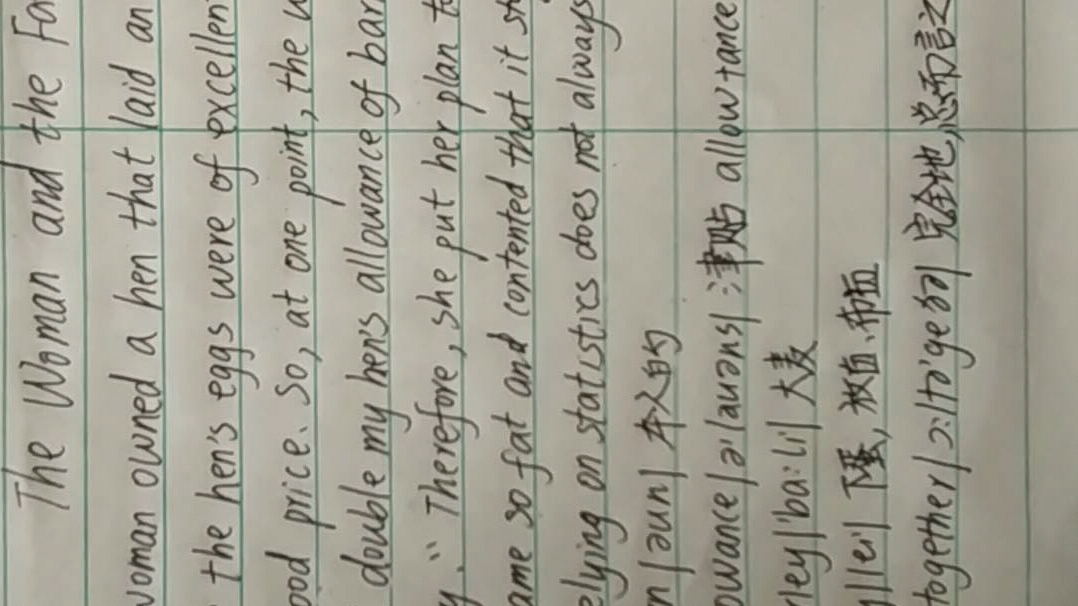 The Woman and the Fa
woman owned a hen that laid an
the hen's eggs were of excellen
ood price. So, at one point, the w
double my hen's allowance of bar
y." Therefore, she put her plan to
ame so fat and contented that it st
elying on statistics does not always
n |əun| 本人的
owance |ə'lauəns| :津贴 allowtance
rley |'ba:li| 大麦
y |lei| 下蛋, 放置、布置
together |ɔ:ltə'geðə| 完全地,总而言之